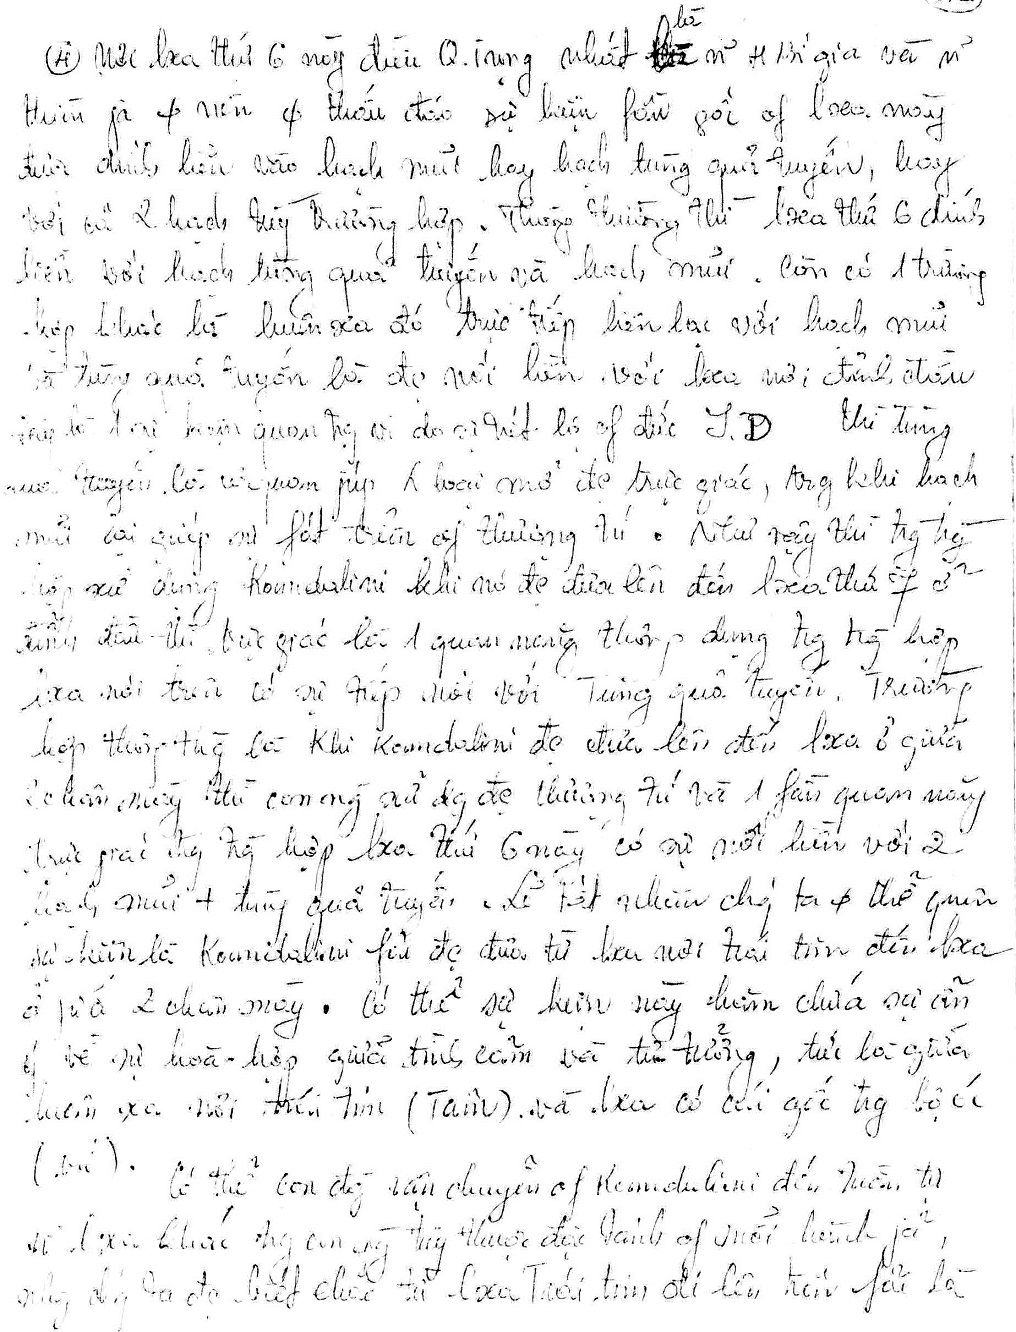 (4) Nơi lxa thứ 6 này điều Q.Trọng nhất là vì H Bí gia và vì
thiền jả ϕ nên ϕ thấu đáo sự kiện fần gốc of lxa này
dính liền vào hạch mũi hay hạch tùng quả tuyến, hay
với cả 2 hạch tùy trường hợp. Thông thường thì lxa thứ 6 dính
liền với hạch tùng quả tuyến và hạch mũi. Còn có 1 trường
hợp khác là luân xa đó trực tiếp liên lạc với hạch mũi
và tùng quả tuyến là đc nối liền với lxa nơi đỉnh đầu
là 1 sự kiện quan trg vì do sự tiết lộ of đức J.D thì tùng
quả tuyến là cơ quan júp nhân loại mở đc trực giác, trg khi hạch
mũi lại giúp sự fát triển of thượng trí. Như vậy thì trg trg
hợp sử dụng Koundalini khi nó đc đưa lên đến lxa thứ 7 ở
đỉnh đầu thì trực giác là 1 quan năng thông dụng trg trg hợp
lxa nói trên có sự tiếp nối với Tùng quả tuyến. Trường
hợp thông thg là khi Koundalini đc đưa lên đến lxa ở giữa
2 chân mày thì con ng sử dg đc thượng trí và 1 fần quan năng
trực giác trg trg hợp lxa thứ 6 này có sự nối liền với 2
hạch mũi + tùng quả tuyến. Lẽ tất nhiên chg ta ϕ thể quên
sự kiện là Koundalini fải đc đưa từ lxa nơi trái tim đến lxa
ở jữa 2 chân mày. Có thể sự kiện này hàm chứa sự ẩn
ý về sự hoà-hợp giữa tình cảm và tư tưởng, tức là giữa
luân xa nơi trái tim (Tâm) và lxa có cái gốc trg bộ óc
(trí).
Có thể con đg vận chuyển of Koundalini đến tuần tự
lxa khác trg con ng tùy thuộc đặc tánh of mỗi hành jả,
nhg chg ta đc biết chắc từ lxa Trái tim đi lên trên fải là